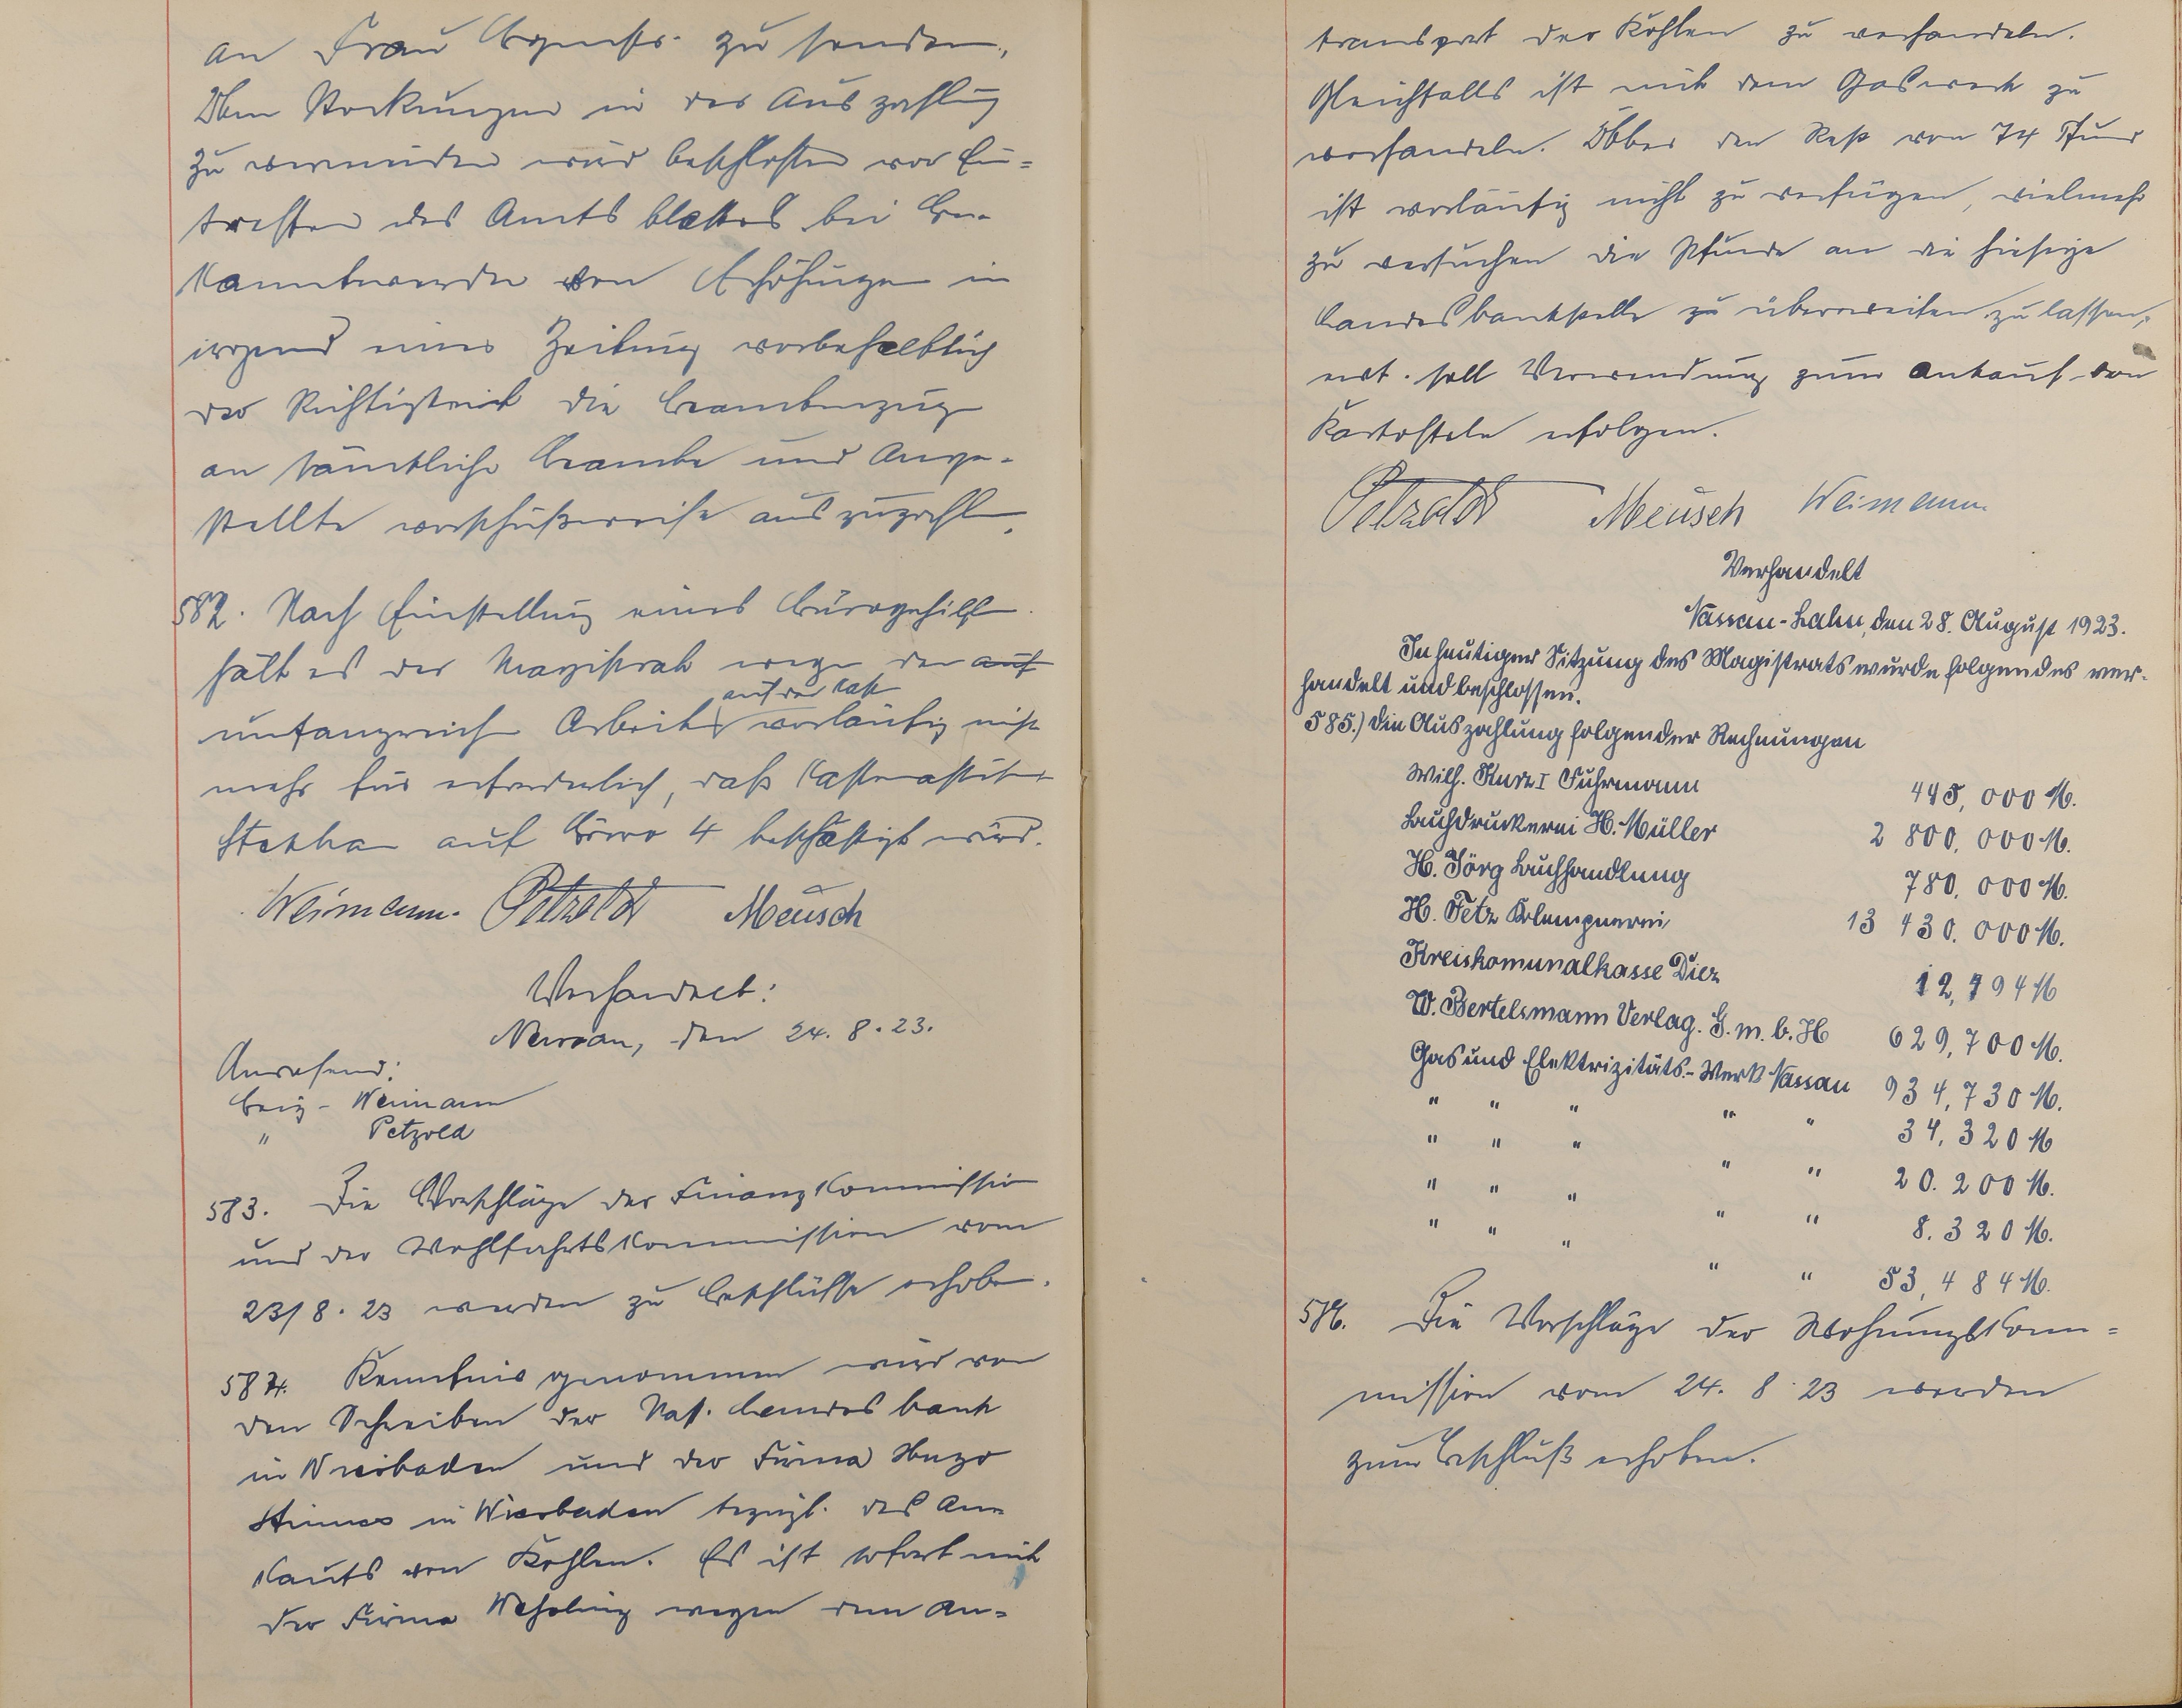 an Frau zu senden.
Um Stockungen in der Auszahlung
zu vermeiden wird beschlossen vor Ein=
treffen des Amtsblattes bei Be-
kanntwerden von Erhöhungen in
irgend einer Zeitung vorbehaltlich
der Richtigkeit die Beamtenzüge
an sämtliche Beamte und Ange-
stellte vorschußweise auszuzahlen.
582. Nach Einstellung eines Bürogehilfen
hält es der Magistrat wegen der auf
auf der Kasse
umfangreichen Arbeiten vorläufig nicht
mehr für erforderlich, daß Kassenassistent
auf Büro 4 beschäftigt wird.
Weimann. Petzold Meusch
Verhandelt:
Nassau, den 24. 8. 23.
Anwesend:
Beig. Weimann
" Petzold
583. Die Vorschläge der Finanzkommission
und der Wohlfahrtskommission vom
23/8. 23 werden zu Beschlüsse erhoben.
584. Kenntnis genommen wird von
den Schreiben der Nass. Landesbank
in Wiesbaden und der Firma Hugo
Stinnes in Wiesbaden bezügl. des An-
kaufs von Kohlen. Es ist sofort mit
der Firma wegen dem An-
transport der Kohlen zu verhandeln.
Gleichfalls ist mit dem Gaswerk zu
verhandeln. Über den Rest von 74 Pfund
ist vorläufig nicht zu verfügen, vielmehr
zu versuchen die Pfunde an die hiesige
Landesbankstelle zu überweisen zu lassen,
evt. soll Verwendung zum Ankauf von
Kartoffeln erfolgen.
Petzold Meusch Weimann
Verhandelt
Nassau-Lahn, den 28. August 1923.
In heutiger Sitzung des Magistrats wurde folgendes ver-
handelt und beschlossen.
585.) Die Auszahlung folgender Rechnungen
Wilh. I Fuhrmann 445,000 M.
Buchdruckerei H. Müller 2 800,000 M.
H. Jörg Buchhandlung 780,000 M.
H. Petz Klempnerei 13 430.000 M.
Kreiskomunalkasse Diez 12,494 M
W. Bertelsmann Verlag. G. m. b. H 629,700 M.
Gas und Elektrizitäts-Werk Nassau 934,730 M.
" " " " " 34,320 M
" " " " " 20.200 M.
" " " " " 8.320 M.
" " " " " 53,484 M.
586. Die Vorschläge der Wohnungskom=
mission vom 24. 8. 23 werden
zum Beschluß erhoben.